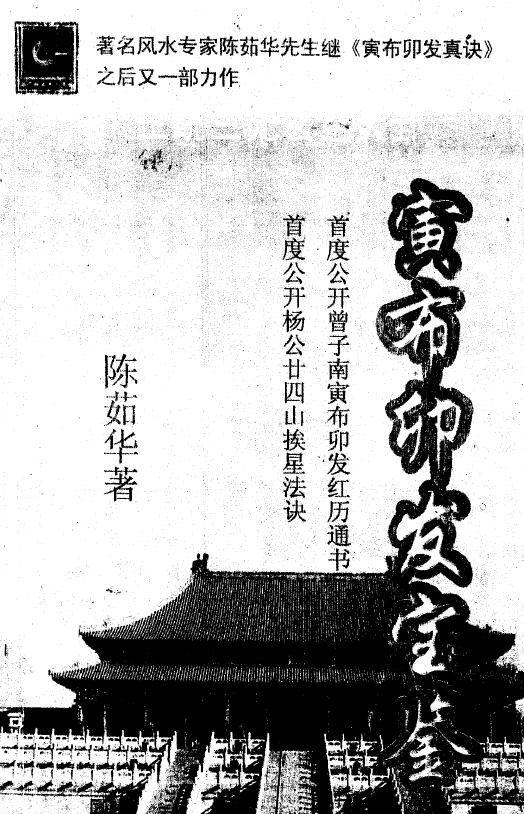 著名风水专家陈茹华先生继《寅布卯发真诀》
之后又一部力作
寅布卯发宝鉴
首度公开曾子南寅布卯发红历通书
首度公开杨公廿四山挨星法诀
陈茹华著